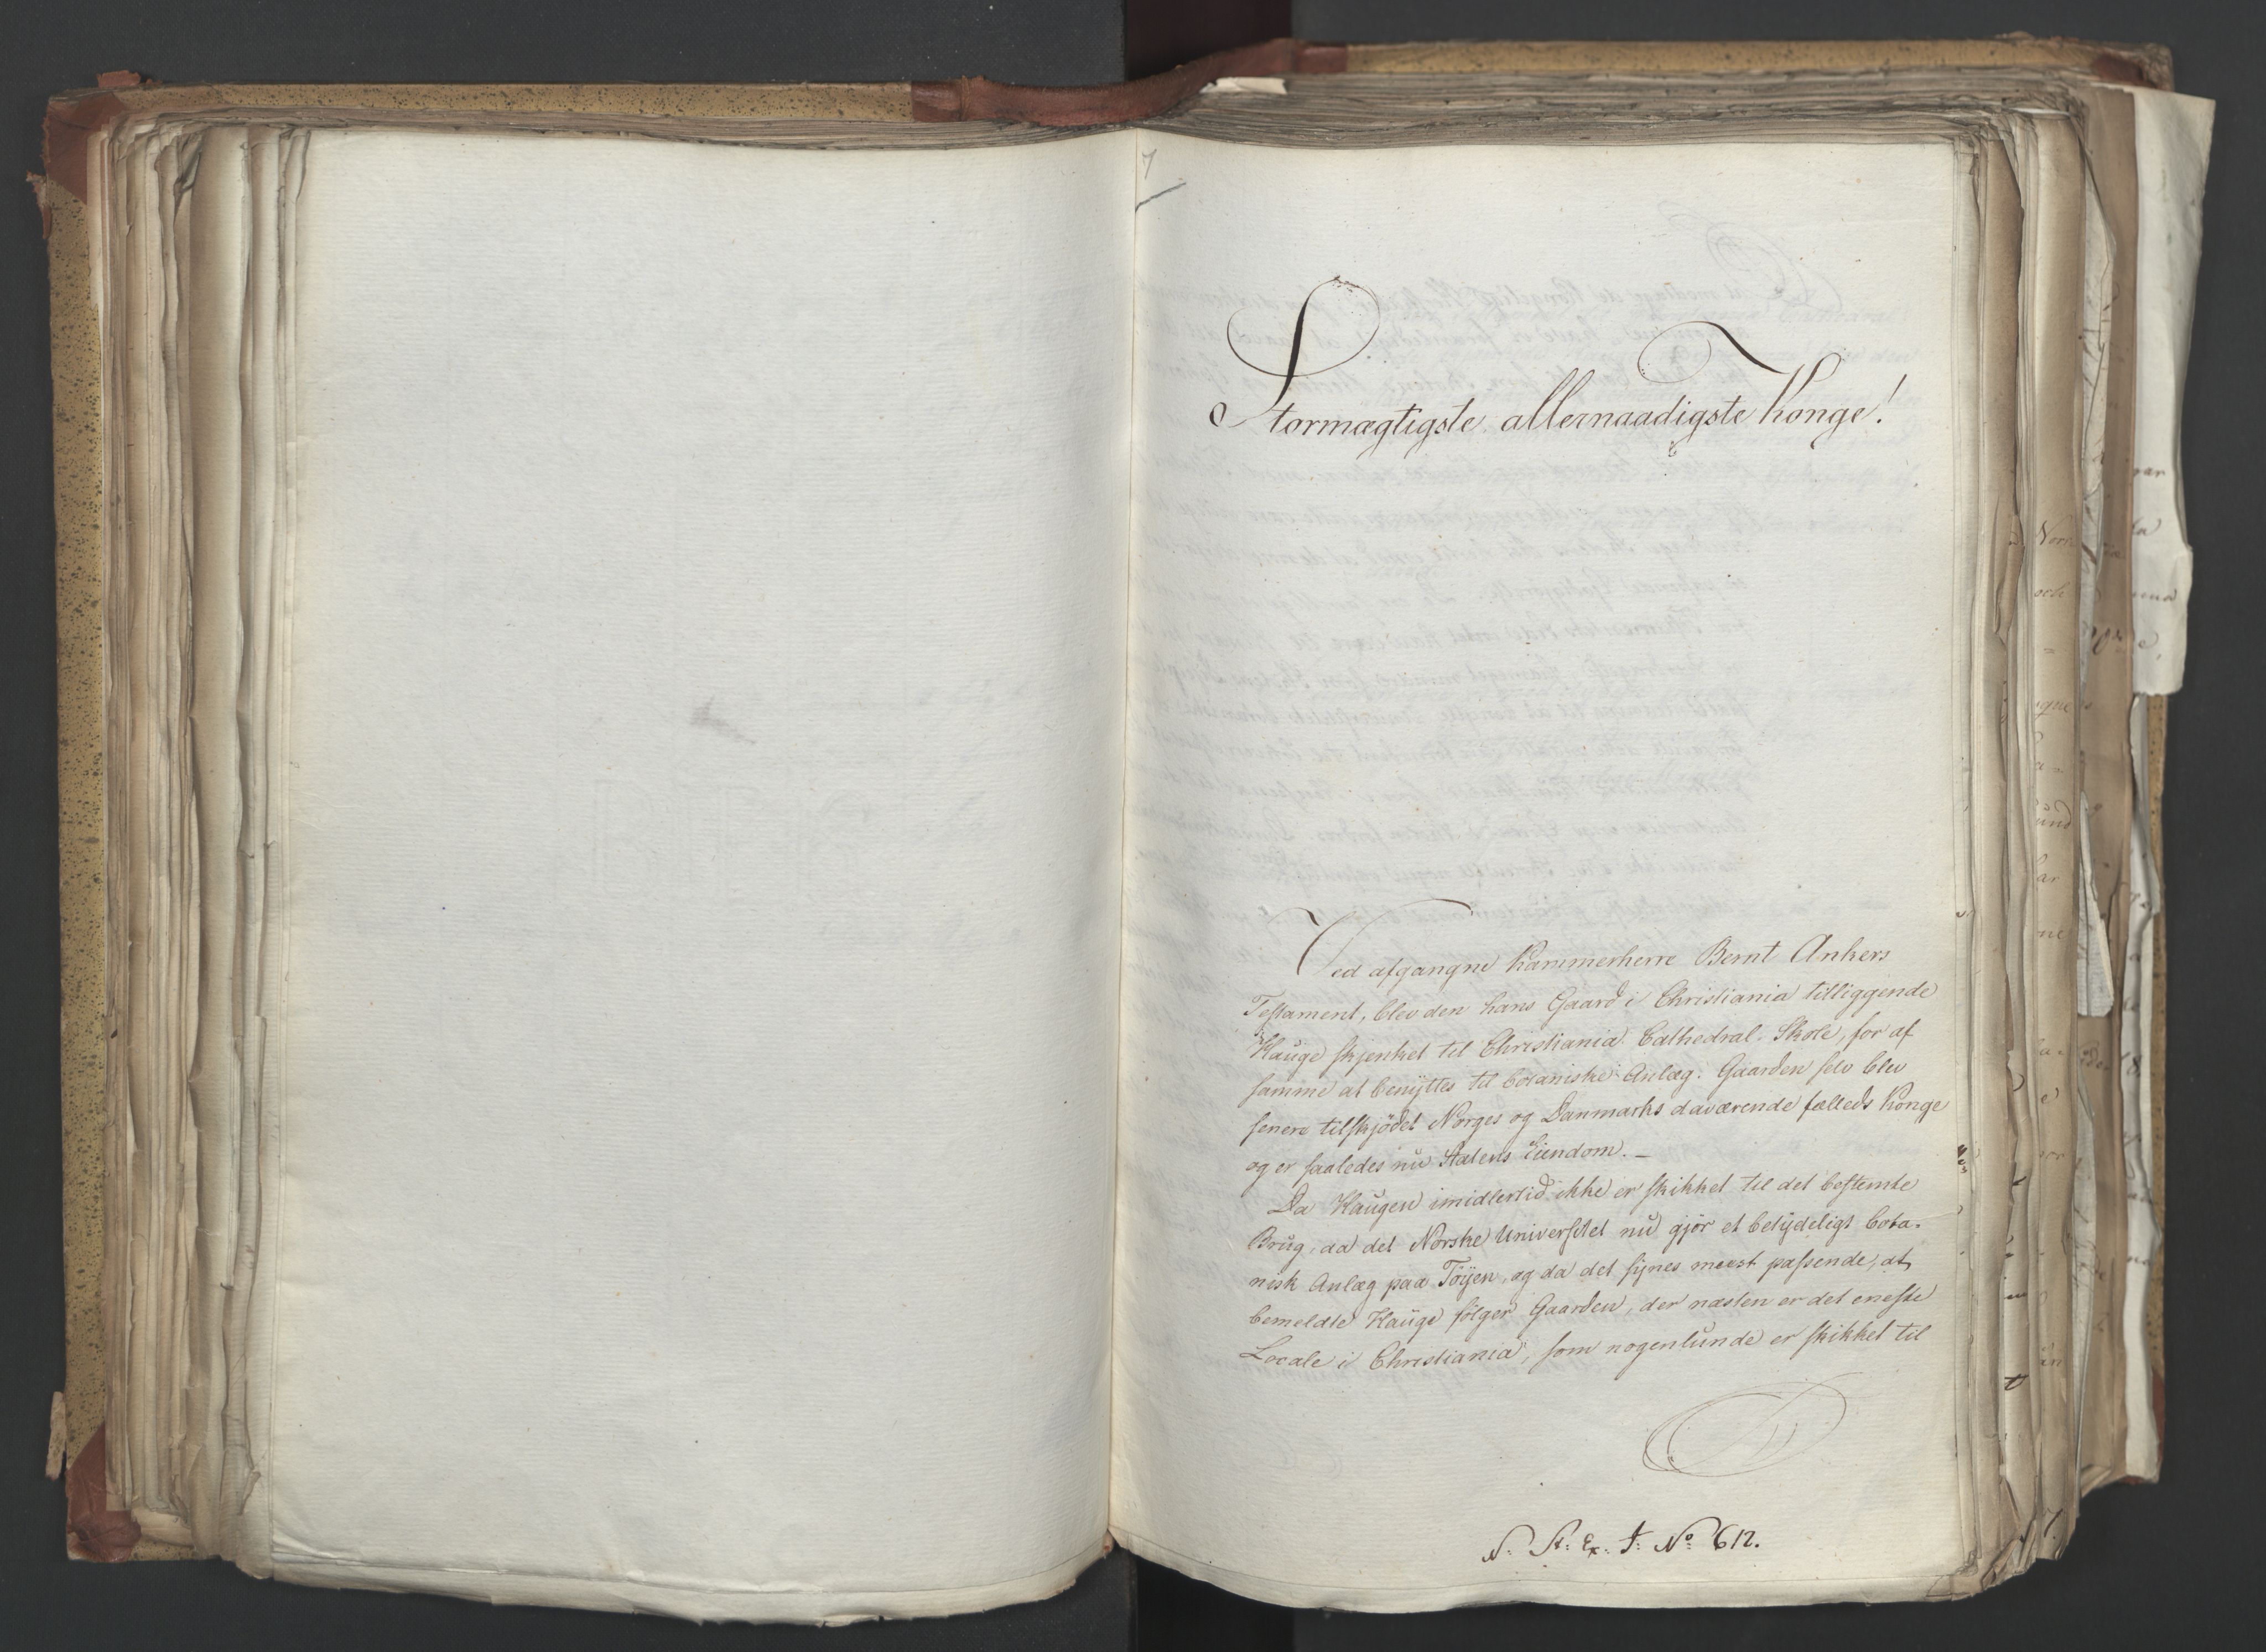 7
Stormægtigste allernaadigste Konge!
Ved afgangne Kammerherre Bernt Ankers
Testament, blev den hans Gaard i Christiania tilliggende
Hauge skjenket til Christiania Cathedral-Skole, for af
samme at benyttes til botaniske Anlæg. Gaarden selv blev
senere tilskjödet Norges og Danmarks daværende fælleds Konge
og er saaledes nu Statens Eiendom. –
Da Haugen imidlertid ikke er skikket til det bestemte
Brug, da det Norske Universitet nu gjör et betydeligt bota-
nisk Anlæg paa Töyen, og da det synes meest passende, at
bemeldte Hauge fölger Gaarden, der næsten er det eneste
Locale i Christiania, som nogenlunde er skikket til
N. St: Ex. J: No 612.